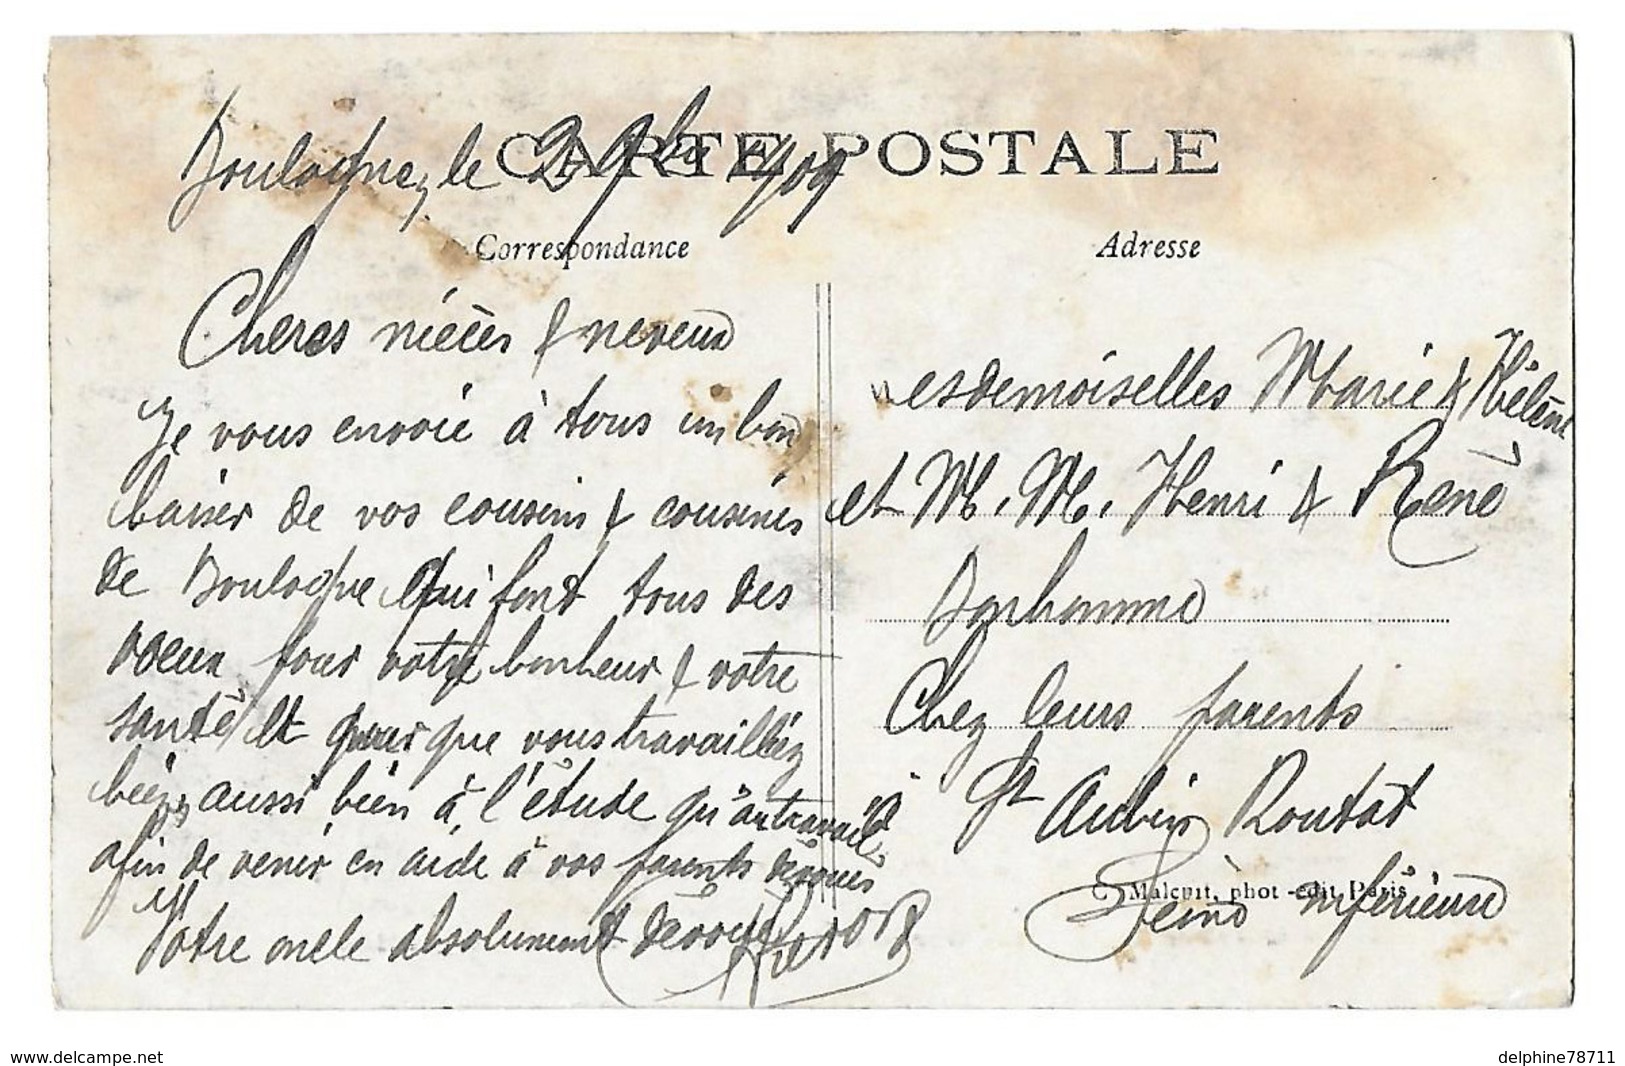 CARTE POSTALE
Boulogne, le 2 9bre 1909
Correspondance
Chères nièces & neveux
Je vous envoie à tous un bon
baiser de vos cousins & cousines
de Boulogne qui font tous des
voeux pour votre bonheur & votre
santé et pour que vous travailliez
bien, aussi bien à l'étude qu'au travail
afin de venir en aide à vos parents dévoués
Votre oncle absolument dévoué
Adresse
Mesdemoiselles Marie & Hélène
et M. M. Henri & René
Bonhomme
Chez leurs parents
St Aubin Routot
Seine inférieure
C. Malcuit, phot-edit, Paris
www.delcampe.net
delphine78711